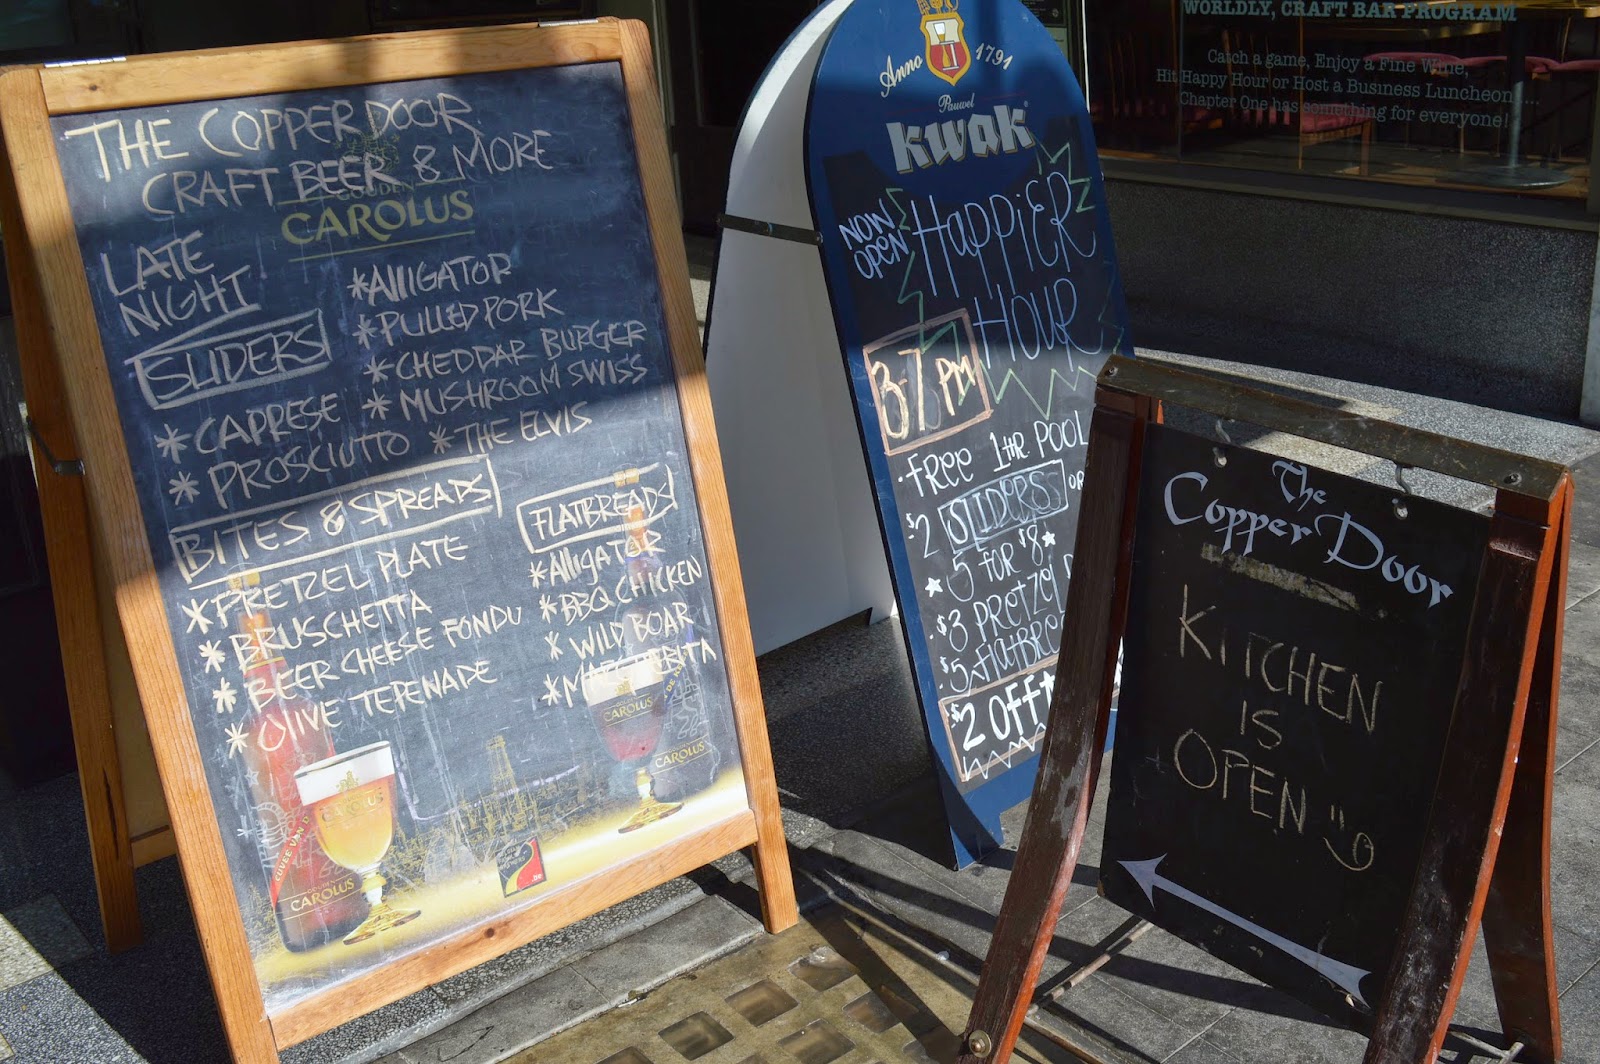 THE COPPER DOOR
CRAFT BEER & MORE
GOUDEN
CAROLUS
LATE
NIGHT
SLIDERS
*AllIGATOR
*PULLED PORK
*CHEDDAR BURGER
*CAPRESE * MUSHROOM SWISS
*PROSCIUTTO *THE ELVIS
BITES & SPREADS
*PRETZEL PLATE
*BRUSCHETTA
*BEER CHEESE FONDU
*OLIVE TEPENADE
FLATBREADS
*AllIgATOR
*BBQ CHICKEN
*WILD BOAR
*MARGHERITA
CAROLUS
CUVEE VAN D
GOUDEN
CAROLUS
CAROLUS
CAROLUS
Anno 1791
Pauwel
kwak
NOW
OPEN
HAPPiER
HOUR
3-7 PM
·FREE 1HR POOL
·$2 SLIDERS OR
*5 FOR $8*
·$3 PRETZEL
·$5 FlATBRE
$2 OFF
WORLDLY, CRAFT BAR PROGRAM
Catch a game, Enjoy a Fine Wine,
Hit Happy Hour or Host a Business Luncheon ...
Chapter One has something for everyone!
The
Copper Door
KITCHEN
IS
OPEN